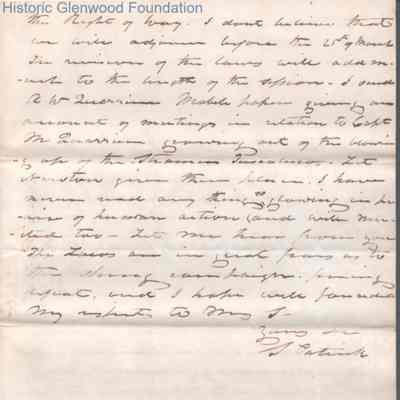 Historic Glenwood Foundation
the Right of Way. I dont believe that
we will adjourn before the 25th of March
The revision of the laws will add m-
uch to the length of the session. I send
R W Mobile papers giving an
account of meetings in relation to Capt
M growing out of the blowing
up of the Steamer Let
Newton give them place. I have
never read any thing so glowing in pr-
aise of human action (and well mer-
ited too - Let me hear from you
The are in great fears as to
the campaign.
defeat, and I hope well founded
My respects to Mrs S-
Yours &c
S Patrick